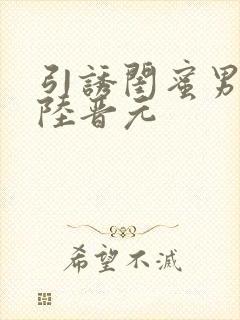 引誘閨蜜男
陸晋元
希望不滅